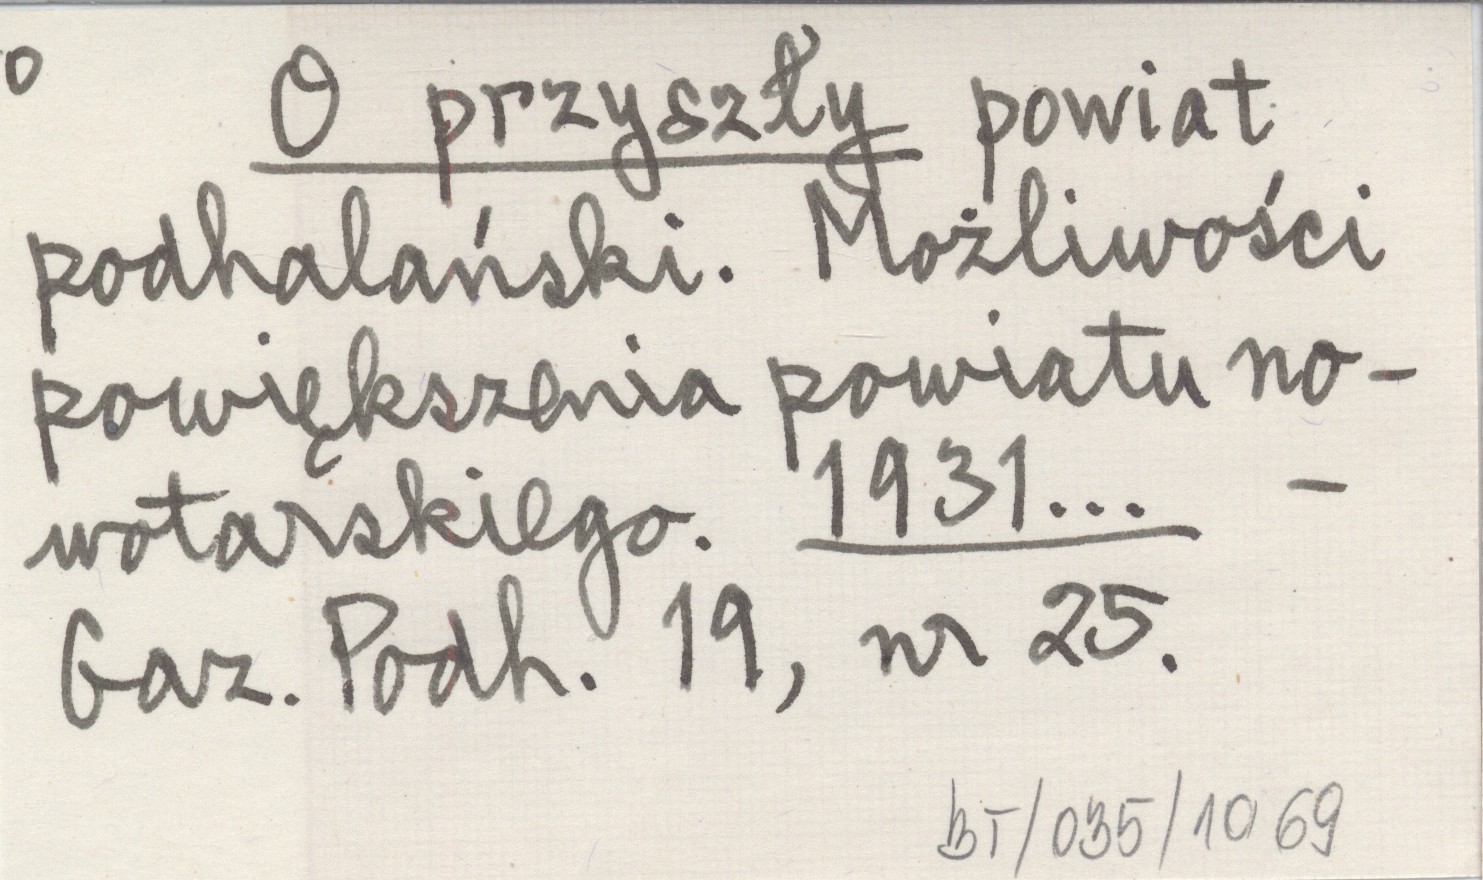 o
O przyszły powiat
podhalański. Możliwości
powiększenia powiatu no-
wotarskiego. 1931... -
Gaz. Podh. 19, nr 25.
BT/035/1069